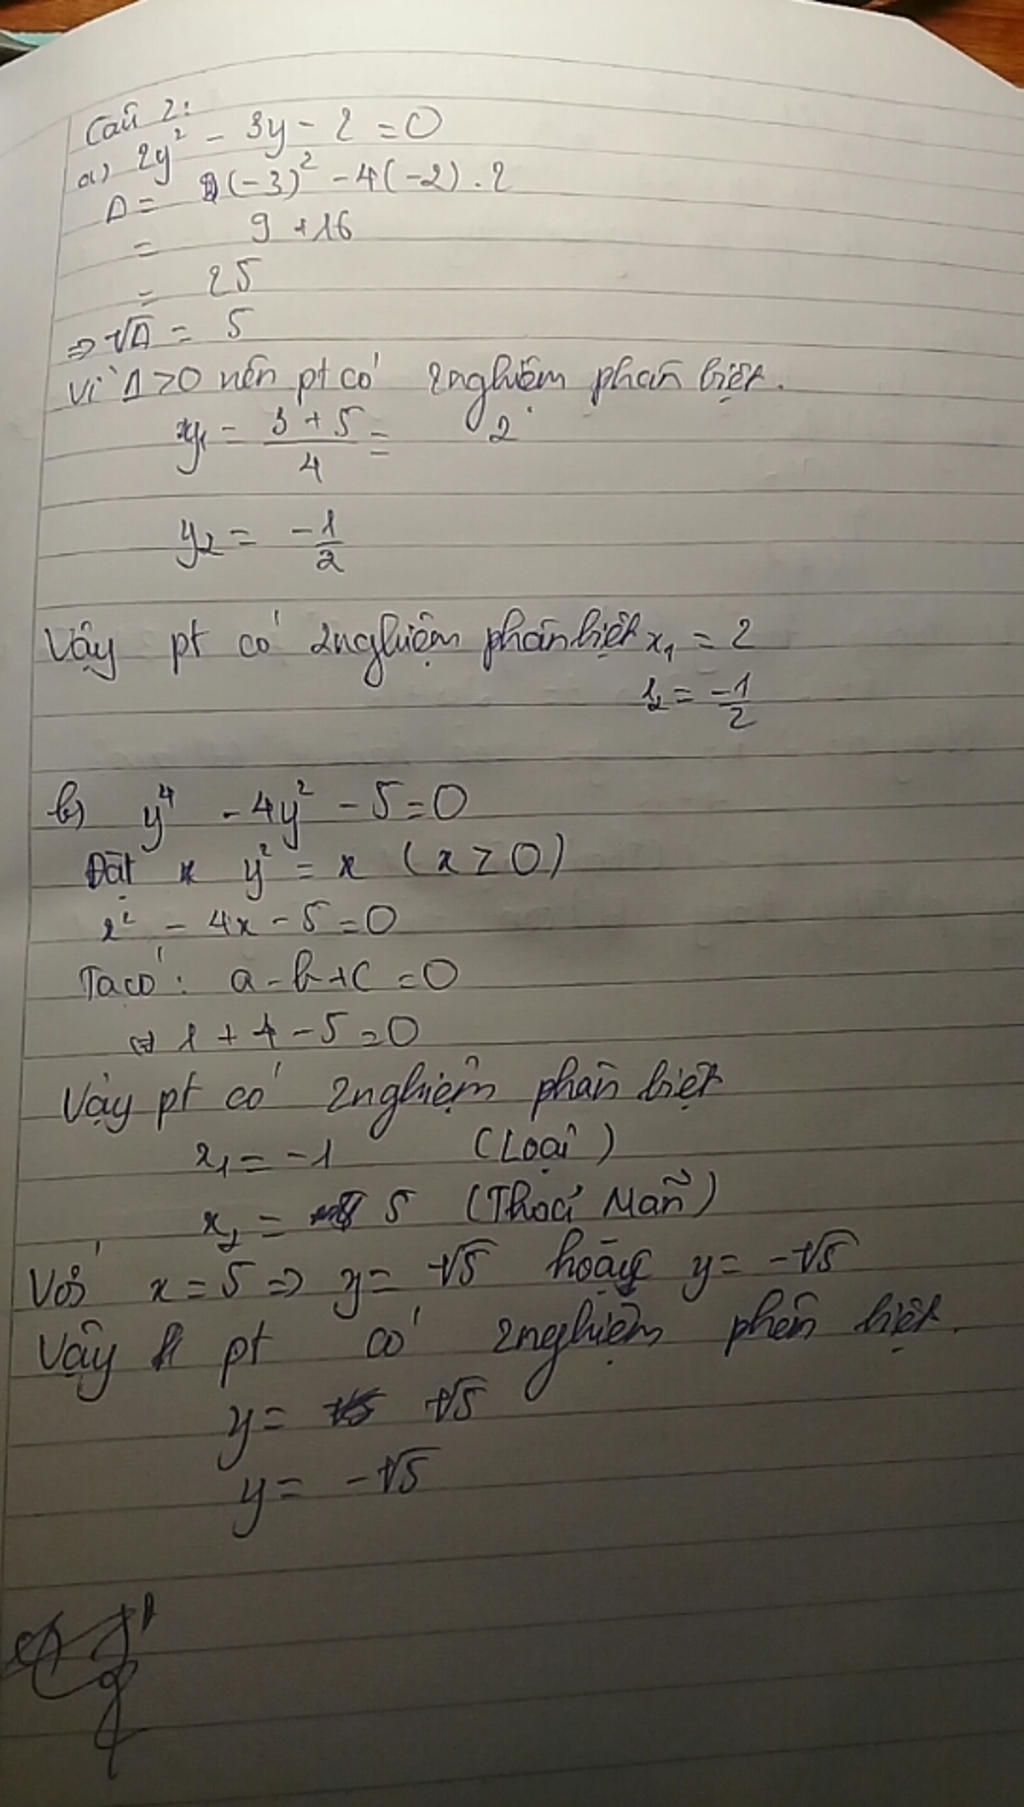 Câu 2:
a) 2y² - 3y - 2 = 0
Δ = (-3)² - 4(-2).2
= 9 + 16
= 25
⇒ √Δ = 5
Vì Δ > 0 nên pt có 2 nghiệm phân biệt.
y₁ = (3 + 5)/4 = 2
y₂ = -1/2
Vậy pt có 2 nghiệm phân biệt x₁ = 2
x₂ = -1/2
b) y⁴ - 4y² - 5 = 0
Đặt y² = x (x ≥ 0)
x² - 4x - 5 = 0
Ta có: a - b + c = 0
⇔ 1 + 4 - 5 = 0
Vậy pt có 2 nghiệm phân biệt
x₁ = -1 (Loại)
x₂ = 5 (Thoả Mãn)
Với x = 5 ⇒ y = √5 hoặc y = -√5
Vậy pt có 2 nghiệm phân biệt.
y = √5
y = -√5